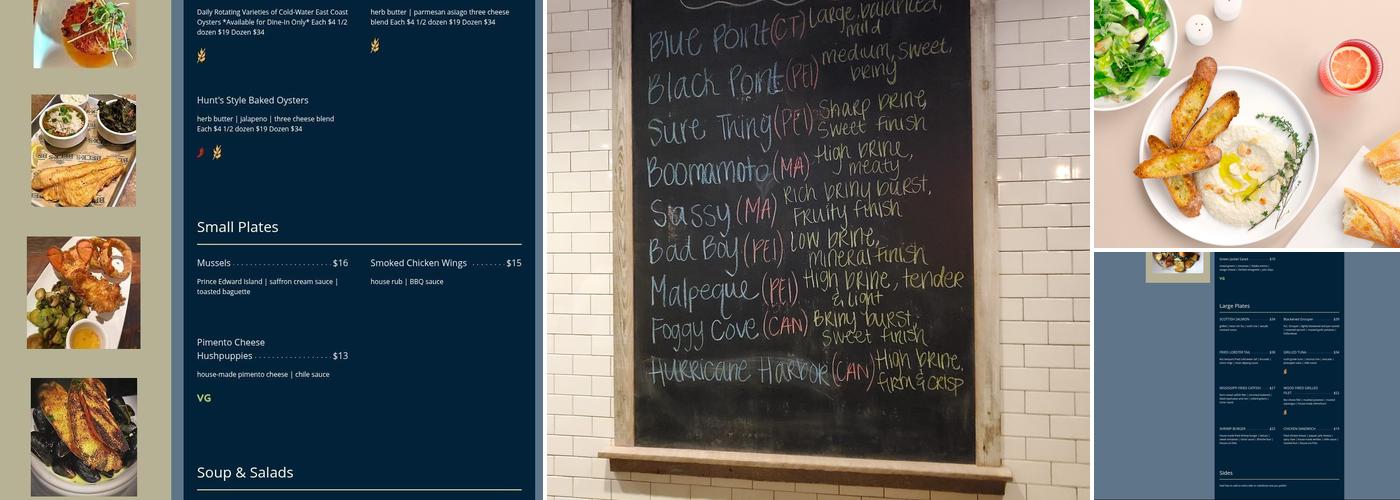 Daily Rotating Varieties of Cold-Water East Coast
Oysters *Available for Dine-In Only* Each $4 1/2
dozen $19 Dozen $34
herb butter | parmesan asiago three cheese
blend Each $4 1/2 dozen $19 Dozen $34
Hunt's Style Baked Oysters
herb butter | jalapeno | three cheese blend
Each $4 1/2 dozen $19 Dozen $34
Small Plates
Mussels $16
Prince Edward Island | saffron cream sauce |
toasted baguette
Smoked Chicken Wings $15
house rub | BBQ sauce
Pimento Cheese
Hushpuppies $13
house-made pimento cheese | chile sauce
VG
Soup & Salads
Blue Point (CT) Large, balanced,
mild
Black Point (PEI) medium, sweet,
briny
Sure Thing (PEI) Sharp brine,
Sweet finish
Boomamoto (MA) High brine,
meaty
Sassy (MA) Rich briny burst,
Fruity finish
Bad Boy (PEI) Low brine,
mineral finish
Malpeque (PEI) High brine, tender
& light
Foggy Cove (CAN) Briny burst,
Sweet finish
Hurricane Harbor (CAN) High brine,
firm & crisp
Green Jacket Salad
VG
Large Plates
SCOTTISH SALMON
Blackened Grouper
FRIED LOBSTER TAIL
GRILLED TUNA
MISSISSIPPI FRIED CATFISH
WOOD FIRED GRILLED
FILET
SHRIMP BURGER
CHICKEN SANDWICH
Sides